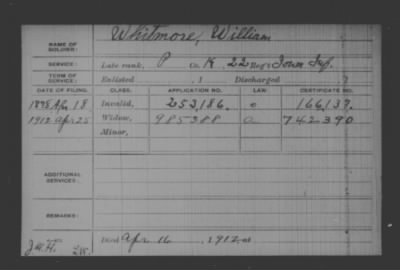 NAME OF SOLDIER: Whitmore, William
SERVICE: Late rank, P Co. K, 22 Reg't Iowa Inf.
TERM OF SERVICE: Enlisted , 1 Discharged , 1
DATE OF FILING. CLASS. APPLICATION NO. LAW. CERTIFICATE NO.
Apr 18 Invalid, 253,186. 166,137.
1912 Apr 25 Widow, 985388 742390
Minor,
ADDITIONAL SERVICES:
REMARKS:
Died Apr 16 , 1912 at